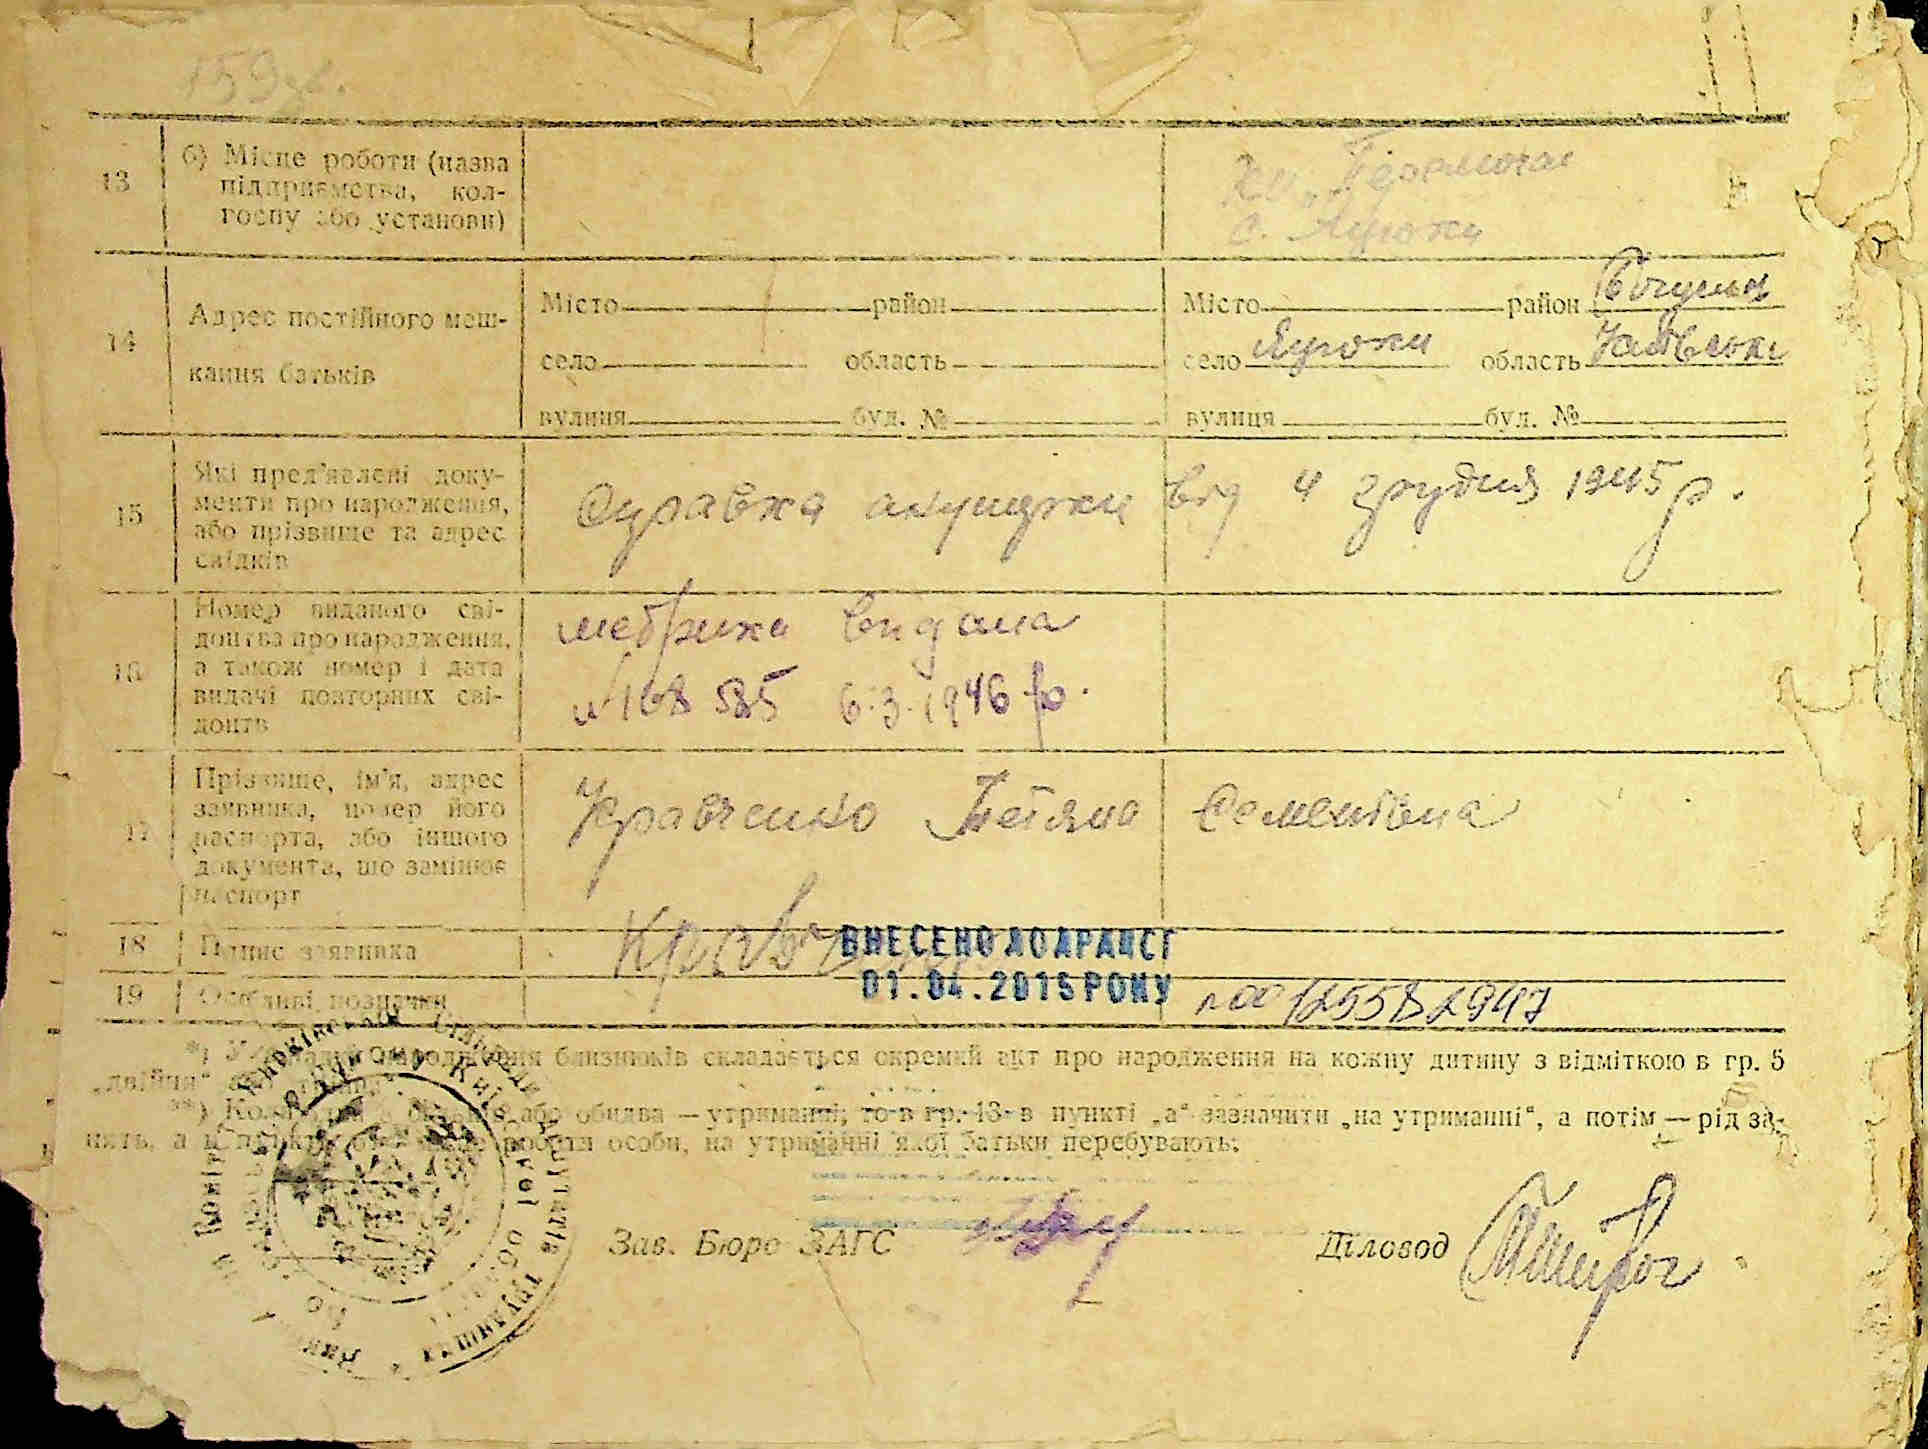 159
13
б) Місце роботи (назва
підприємства, кол-
госпу або установи)
с. Яцюки
14
Адрес постійного меш-
кання батьків
Місто район
село область
вулиця буд. №
Місто район
село Яцюки область
вулиця буд. №
15
Які пред'явлені доку-
менти про народження,
або прізвище та адрес
свідків
Справка акушерки від 4 грудня 1945 р.
16
Номер виданого сві-
доцтва про народження,
а також номер і дата
видачі повторних сві-
доцтв
метрика видана
№ 168585 6.3.1946 р.
17
Прізвище, ім'я, адрес
заявника, номер його
паспорта, або іншого
документа, що замінює
паспорт
Кравченко Тетяна Семенівна
18
Підпис заявника
19
Особливі позначки
ВНЕСЕНО ДО ДРАЦСГ
01.04.2015 РОКУ
*) У народження близнюків складається окремий акт про народження на кожну дитину з відміткою в гр. 5
„двійня“
**) Коли або обидва — утриманні, то в гр. 13 в пункті „а“ зазначити „на утриманні“, а потім — рід за-
нять, а роботи особи, на утриманні якої батьки перебувають.
Зав. Бюро ЗАГС
Діловод